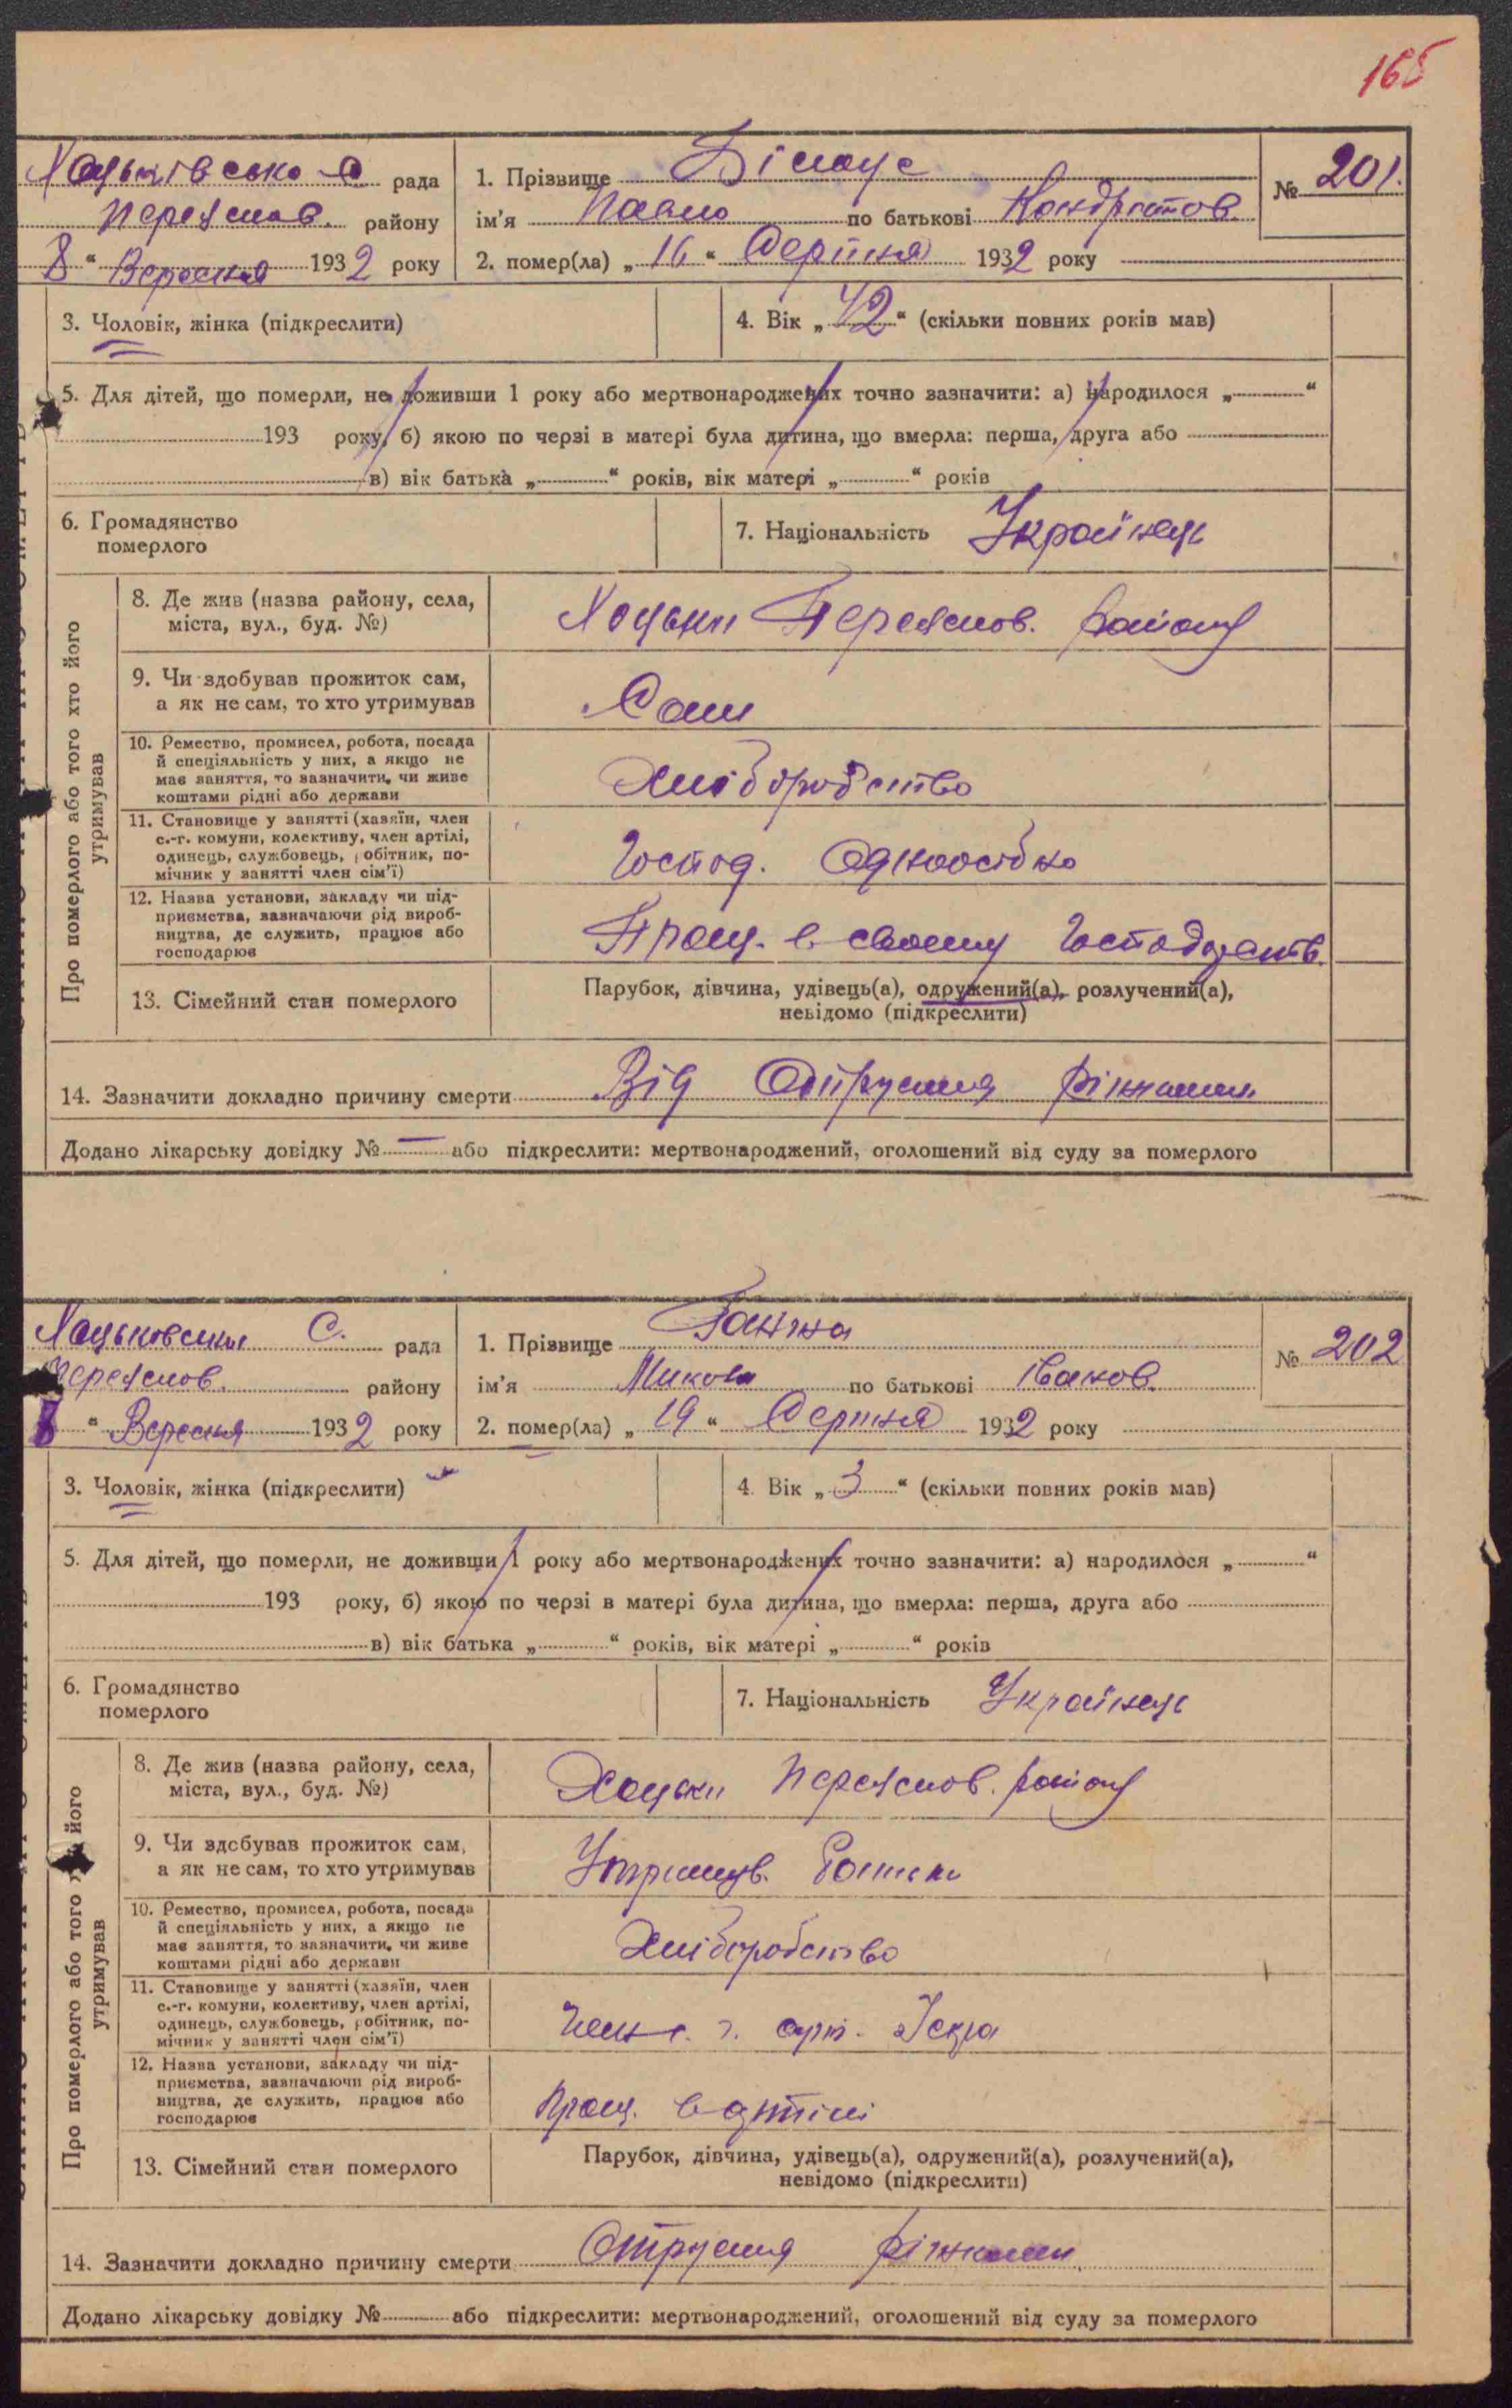 165
Хоцьківсько-а рада
Переяслав. району
8 " Вересня 1932 року
1. Прізвище Білоус
№ 201.
ім'я Павло по батькові Кондратов.
2. помер(ла) „ 16 " Серпня 1932 року
3. Чоловік, жінка (підкреслити)
4. Вік „ 42 " (скільки повних років мав)
5. Для дітей, що померли, не доживши 1 року або мертвонароджених точно зазначити: а) народилося „ "
193 року, б) якою по черзі в матері була дитина, що вмерла: перша, друга або
в) вік батька „ " років, вік матері „ " років
6. Громадянство
померлого
7. Національність Українець
Про померлого або того хто його
утримував
8. Де жив (назва району, села,
міста, вул., буд. №)
Хоцьки Переяслов. району
9. Чи здобував прожиток сам,
а як не сам, то хто утримував
Сам
10. Ремество, промисел, робота, посада
й спеціяльність у них, а якщо не
має заняття, то зазначити, чи живе
коштами рідні або держави
Хліборобство
11. Становище у занятті (хазяїн, член
с.-г. комуни, колективу, член артілі,
одинець, службовець, робітник, по-
мічник у занятті член сім'ї)
Господ. Одноосібно
12. Назва установи, закладу чи під-
приємства, зазначаючи рід вироб-
ництва, де служить, працює або
господарює
Прац. в своему Господарств.
13. Сімейний стан померлого
Парубок, дівчина, удівець(а), одружений(а), розлучений(а),
невідомо (підкреслити)
14. Зазначити докладно причину смерти Від Отруєння ріжками
Додано лікарську довідку № — або підкреслити: мертвонароджений, оголошений від суду за померлого
Хоцьковська С. рада
Переяслов. району
8 " Вересня 1932 року
1. Прізвище Ганжа
№ 202
ім'я Микола по батькові Іванов.
2. помер(ла) „ 19 " Серпня 1932 року
3. Чоловік, жінка (підкреслити)
4. Вік „ 3 " (скільки повних років мав)
5. Для дітей, що померли, не доживши 1 року або мертвонароджених точно зазначити: а) народилося „ "
193 року, б) якою по черзі в матері була дитина, що вмерла: перша, друга або
в) вік батька „ " років, вік матері „ " років
6. Громадянство
померлого
7. Національність Українець
Про померлого або того його
утримував
8. Де жив (назва району, села,
міста, вул., буд. №)
Хоцьки Переяслов. району
9. Чи здобував прожиток сам,
а як не сам, то хто утримував
Утримув. Батьки
10. Ремество, промисел, робота, посада
й спеціяльність у них, а якщо не
має заняття, то зазначити, чи живе
коштами рідні або держави
Хліборобство
11. Становище у занятті (хазяїн, член
с.-г. комуни, колективу, член артілі,
одинець, службовець, робітник, по-
мічник у занятті член сім'ї)
Член с. г. арт. Іскра
12. Назва установи, закладу чи під-
приємства, зазначаючи рід вироб-
ництва, де служить, працює або
господарює
Прац. в артілі
13. Сімейний стан померлого
Парубок, дівчина, удівець(а), одружений(а), розлучений(а),
невідомо (підкреслити)
14. Зазначити докладно причину смерти Отруєння ріжками
Додано лікарську довідку № або підкреслити: мертвонароджений, оголошений від суду за померлого